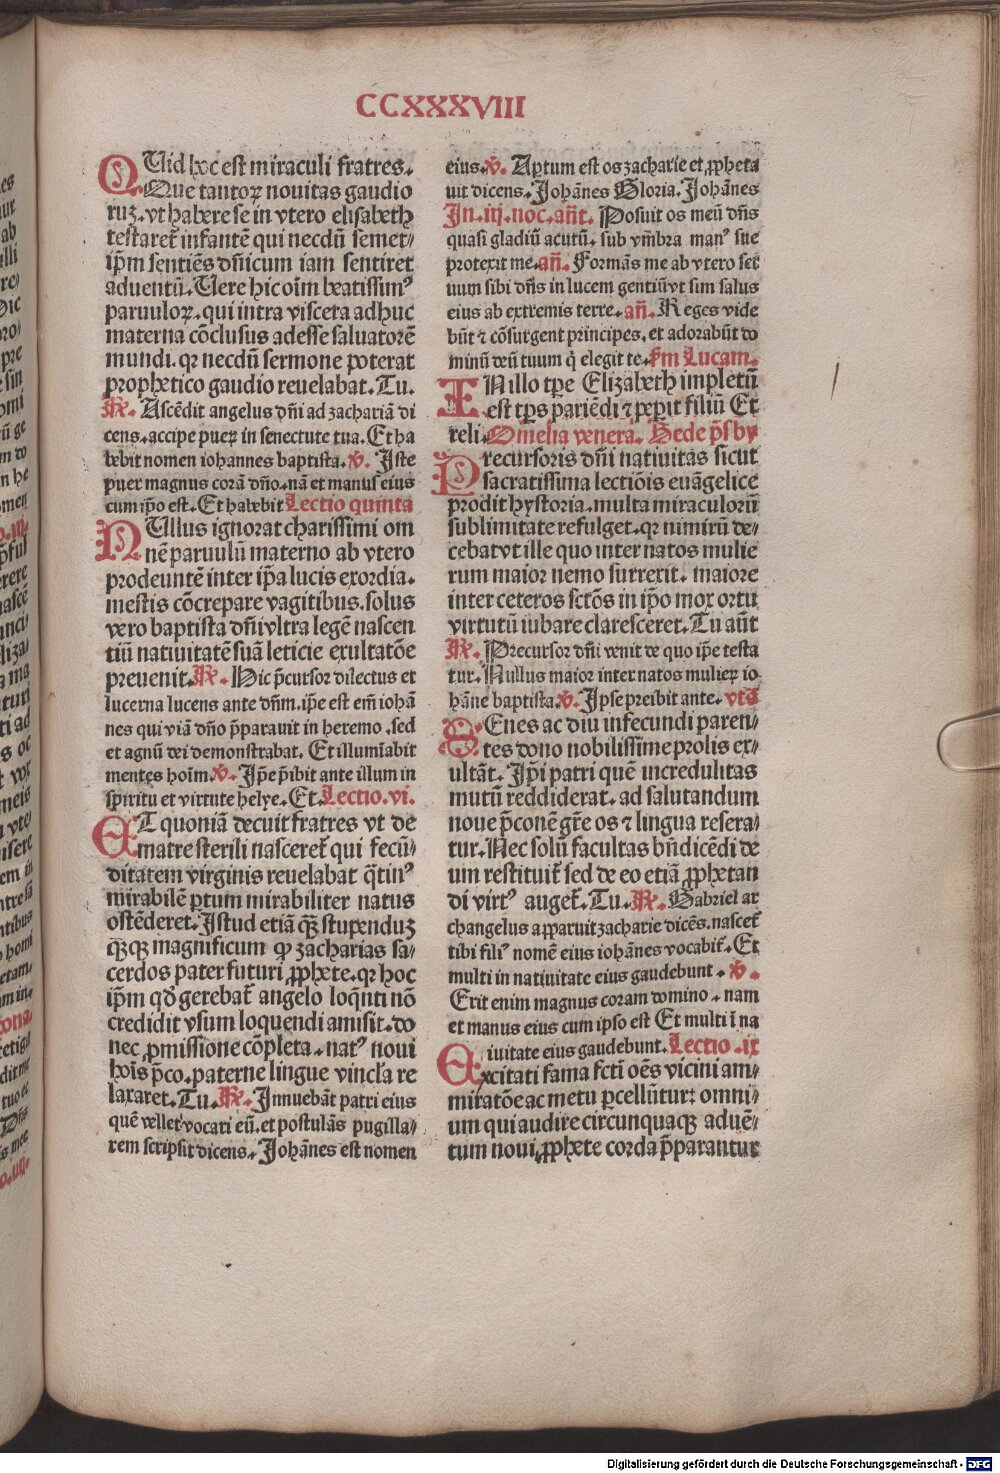 CCXXXVIII
QUid hoc est miraculi fratres.
Que tantoꝝ nouitas gaudio
ruꝫ. vt habere se in vtero elisabeth
testaret᷑ infantē qui necdū semet⸗
ip̄m sentiēs dn̄icum iam sentiret
aduentū. Uere hic oīm beatissimꝰ
paruuloꝝ. qui intra viscera adhuc
materna cōclusus adesse saluatorē
mundi. qꝛ necdū sermone poterat
prophetico gaudio reuelabat. Tu.
℟. Ascēdit angelus dn̄i ad zachariā di
cens. accipe pueꝝ in senectute tua. Et ha
bebit nomen iohannes baptista. ℣. Iste
puer magnus corā dn̄o. nā et manus eius
cum ip̄o est. Et habebit Lectio quinta
NUllus ignorat charissimi om
nē paruulū materno ab vtero
prodeuntē inter ip̄a lucis exordia.
mestis cōcrepare vagitibus. solus
vero baptista dn̄i vltra legē nascen
tiū natiuitatē suā leticie exultatōe
preuenit. ℟. Hic p̄cursor dilectus et
lucerna lucens ante dn̄m. ip̄e est em̄ iohā
nes qui viā dn̄o p̄parauit in heremo. sed
et agnū dei demonstrabat. Et illumīabit
mentes hoīm. ℣. Ip̄e p̄ibit ante illum in
spiritu et virtute helye. Et. Lectio. vi.
ET quoniā decuit fratres vt de
matre sterili nasceret᷑ qui fecū⸗
ditatem virginis reuelabat q̄tinꝰ
mirabilē ꝑtum mirabiliter natus
ostēderet. Istud etiā qꝫ̄ stupenduꝫ
qꝫ̄qꝫ magnificum ꝙ zacharias sa⸗
cerdos pater futuri ꝓphete. qꝛ hoc
ip̄m qd̄ gerebat᷑ angelo loq̄nti nō
credidit vsum loquendi amisit. do
nec ꝓmissione cōpleta. natꝰ noui
hoīs p̄co. paterne lingue vincl̄a re
laxaret. Tu. ℟. Innuebāt patri eius
quē vellet vocari eū. et postulās pugilla⸗
rem scripsit dicens. Iohānes est nomen
eius. ℣. Apertum est os zacharie et ꝓpheta
uit dicens. Iohānes Gloria. Iohānes
In. iij. noc. an̄t. Posuit os meū dn̄s
quasi gladiū acutū. sub vmbra manꝰ sue
protexit me. an̄. Formās me ab vtero ser
uum sibi dn̄s in lucem gentiū vt sim salus
eius ab extremis terre. an̄. Reges vide
būt ⁊ cōsurgent principes. et adorabūt do
minū deū tuum q̄ elegit te. s̄m Lucam.
IN illo tp̄e Elizabeth impletū
est tp̄s pariēdi ⁊ peꝑit filiū Et
reli. Omelia venera. Bede p̄sby
Precursoris dn̄i natiuitas sicut
sacratissima lectiōis euāgelice
prodit hystoria. multa miraculorū
sublimitate refulget. qꝛ nimirū de⸗
cebat vt ille quo inter natos mulie
rum maior nemo surrexit. maiore
inter ceteros sctōs in ip̄o mox ortu
virtutū iubare claresceret. Tu aūt
℟. Precursor dn̄i venit de quo ip̄e testa
tur. Nullus maior inter natos mulieꝝ io⸗
hāne baptista. ℣. Ipse preibit ante. vtS
SEnes ac diu infecundi paren⸗
tes dono nobilissime prolis ex⸗
ultāt. Ip̄i patri quē incredulitas
mutū reddiderat. ad salutandum
noue p̄conē gr̄e os ⁊ lingua resera⸗
tur. Nec solū facultas bn̄dicēdi de
um restituit᷑ sed de eo etiā ꝓphetan
di virtꝰ auget᷑. Tu. ℟. Gabriel ar
changelus apparuit zacharie dicēs. nascet᷑
tibi filiꝰ nomē eius iohānes vocabit᷑. Et
multi in natiuitate eius gaudebunt. ℣.
Erit enim magnus coram domino. nam
et manus eius cum ipso est Et multi ī na
tiuitate eius gaudebunt. Lectio. ix
Excitati fama fcti oēs vicini am⸗
miratōe ac metu ꝑcellūtur: omni⸗
um qui audire circunquaqꝫ aduē⸗
tum noui ꝓphete corda p̄parantur
Digitalisierung gefördert durch die Deutsche Forschungsgemeinschaft - DFG